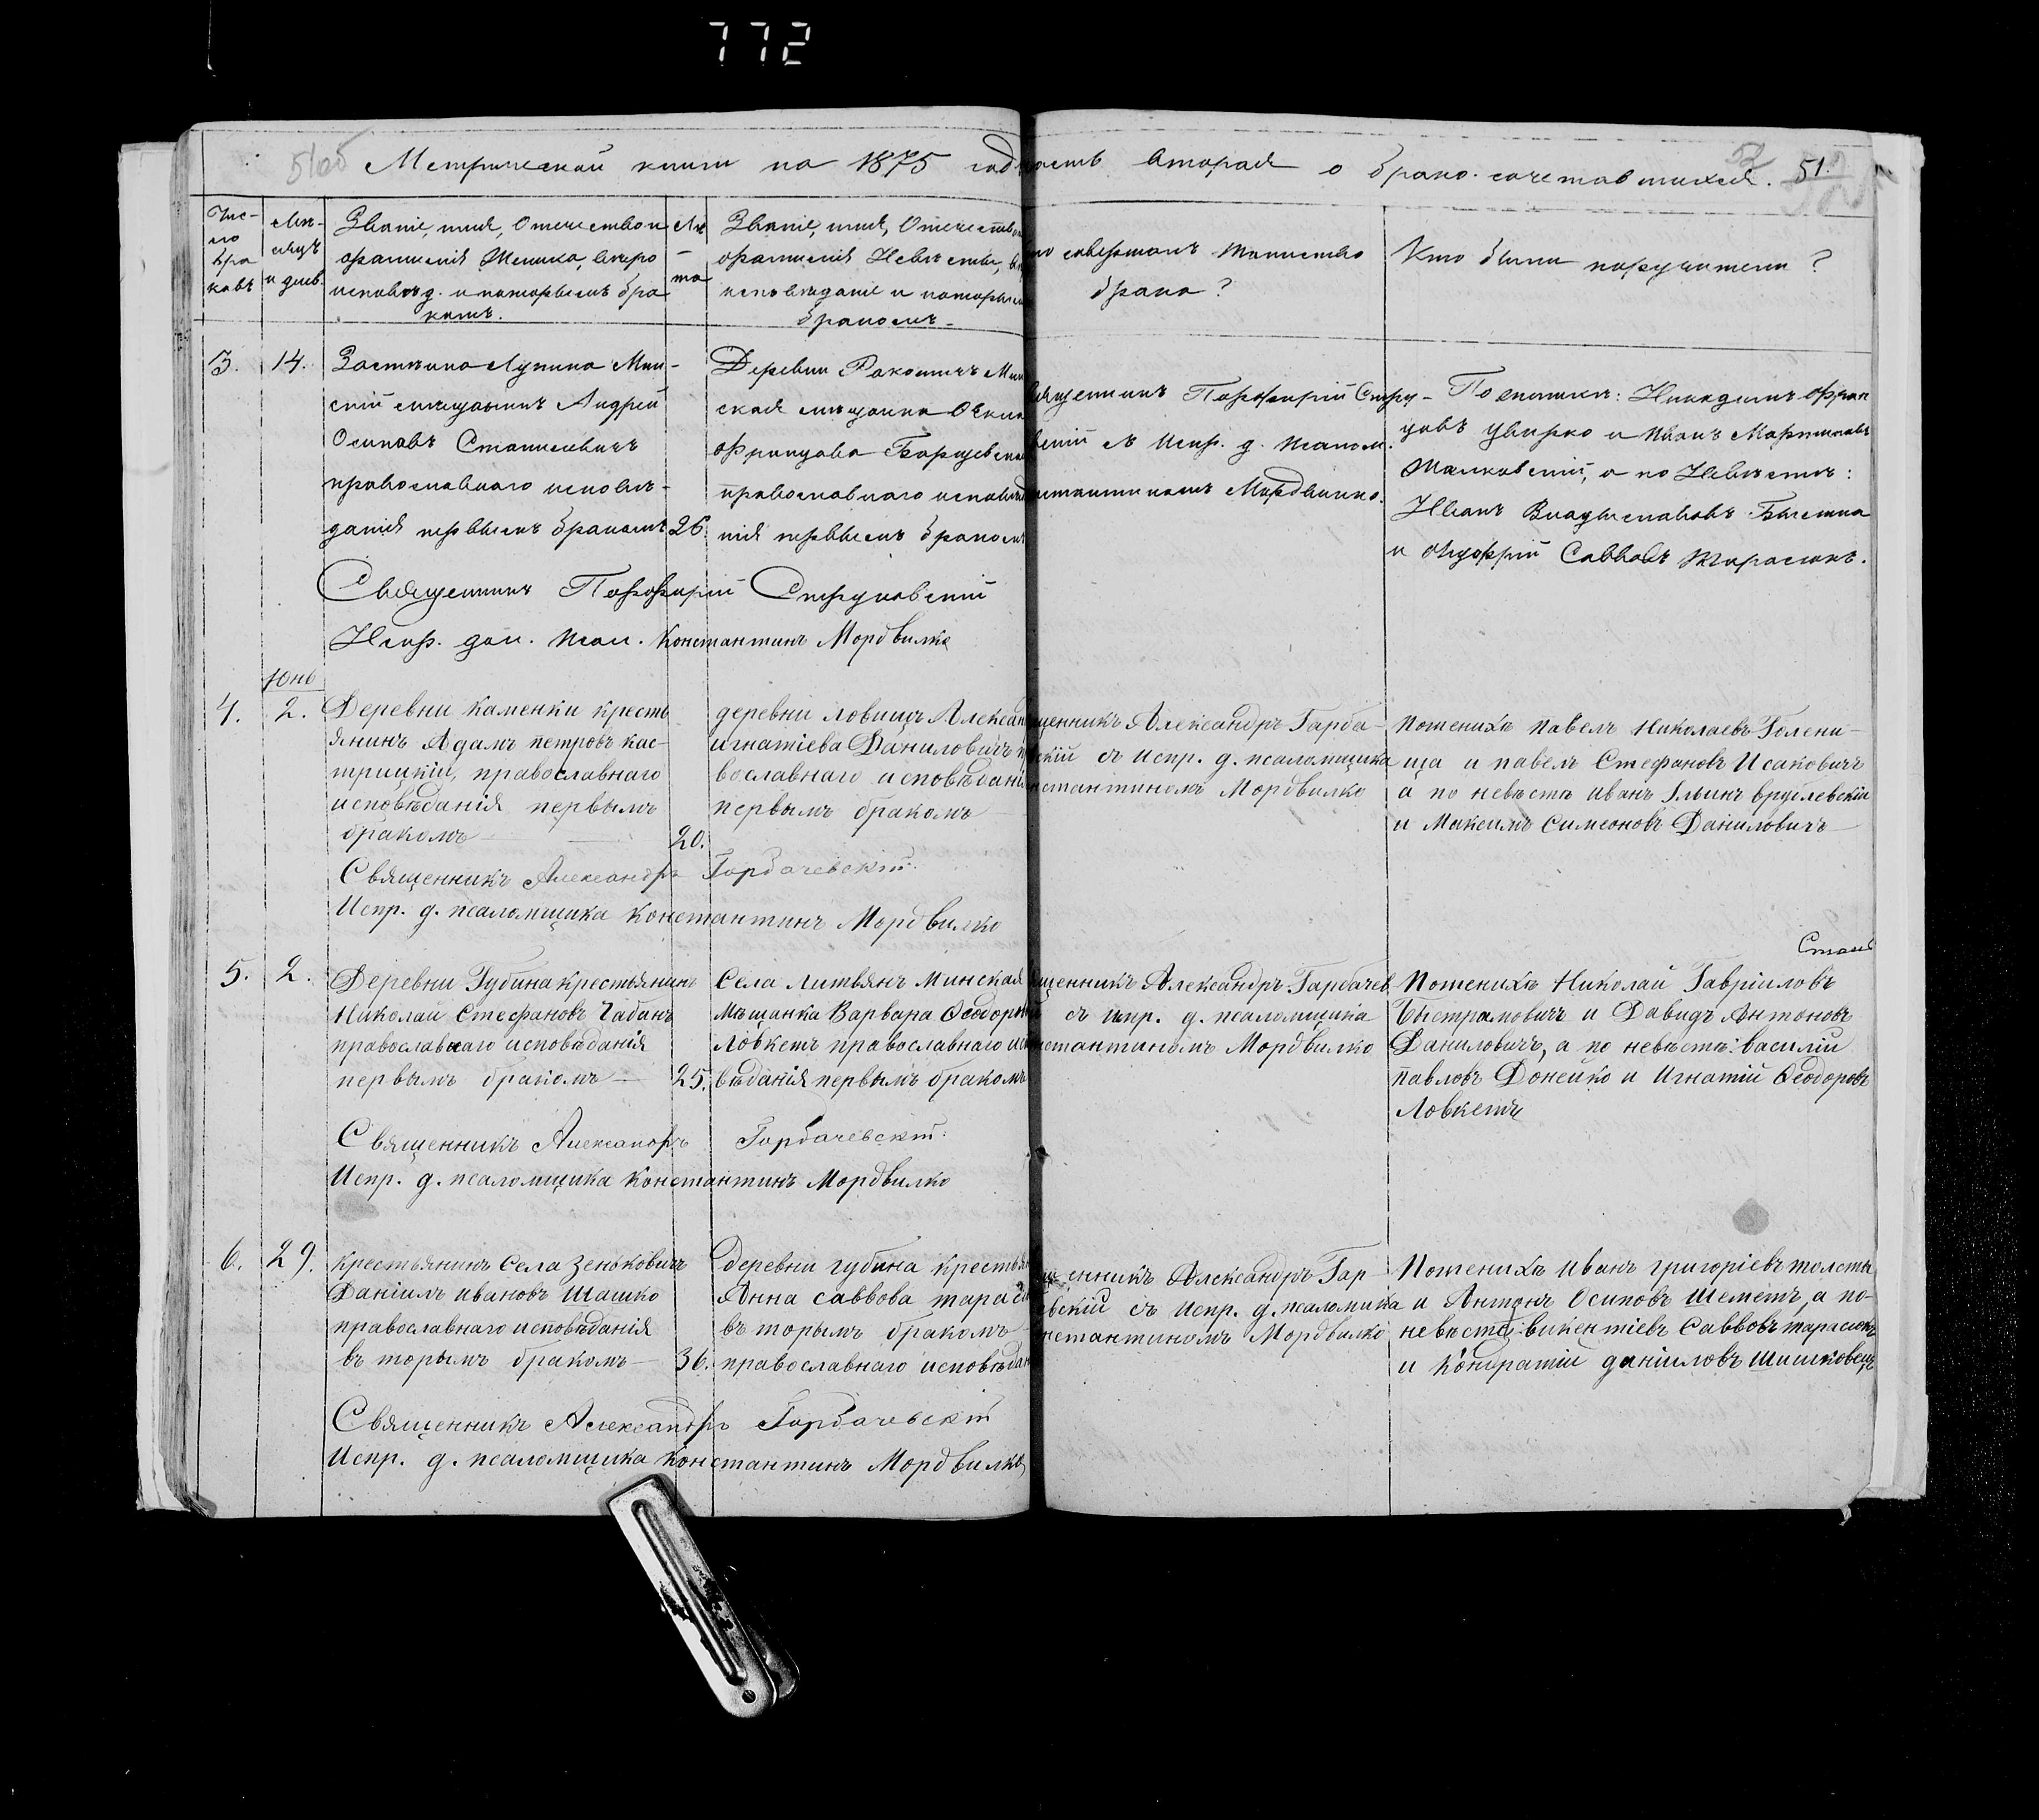 772
51об Метрической книги на 1875 год часть вторая о бракосочетавшихся. 51.
Чис-
ло
бра
ковъ
Мѣ-
сяцъ
и день.
Званіе, имя, Отчество и
фамилія Жениха, вѣро
исповѣд. и которымъ бра
комъ.
Лѣ
-
та
Званіе, имя, Отчество
фамилія Невѣсты,
исповѣданіе и которым
бракомъ.
то совершалъ таинство
брака?
Кто были поручители?
3. 14.
Застѣнка Лупина Мин-
скій мѣщанинъ Андрей
Осиповъ Станишевичъ
православнаго исповѣ-
данія первымъ бракомъ
26.
Деревни Ракошичъ Мин
ская мѣщанка
Францова
православнаго исповѣд
нія первымъ бракомъ
ященникъ Порфирій Стру-
вскій съ Испр. д. псалом.
нстантиномъ Мордвилко.
По женихѣ: Никодимъ Фран
цовъ Цвирко и Иванъ Мартиновъ
Малковскій, а по Невѣстѣ:
Иванъ Владиславовъ
и Онуфрій Саввовъ Тарасюкъ.
Священникъ Порфирій Струковскій
Испр. дол. псал. Константинъ Мордвилко
Юнь
4. 2.
Деревни Каменки кресть
янинъ Адамъ петровъ кас-
трицкій, православнаго
исповѣданія первымъ
бракомъ —
20.
деревни Ловищъ Алексан
игнатіева Даниловичъ п
вославнаго исповѣдані
первымъ бракомъ
щенникъ Александръ Гарба-
вскій съ Испр. д. псаломщика
нстантиномъ Мордвилко
Поженихѣ Павелъ Николаевъ Голени-
ща и павелъ Стефановъ Исаковичъ
а по невѣстѣ иванъ Ильинъ врублевскій
и Максимъ Симеоновъ Даниловичъ
Священникъ Александръ Горбачевскій
Испр. д. псаломщика Константинъ Мордвилко
5. 2.
Деревни Губина крестьянинъ
Николай Стефановъ Чабанъ
православнаго исповѣданія
первымъ бракомъ —
25.
Села Литвянъ Минская
Мѣщанка Варвара Ѳеодоров
Ловкетъ православнаго испо
вѣданія первымъ бракомъ
щенникъ Александръ Гарбачев
й съ испр. д. псаломщика
нстантиномъ Мордвилко
Поженихѣ Николай Гавріиловъ
Быстрамовичъ и Давидъ Антоновъ
Даниловичъ, а по невѣстѣ: василій
павловъ Донейко и Игнатій Ѳеодоровъ
Ловкетъ
Священникъ Александръ Горбачевскій
Испр. д. псаломщика Константинъ Мордвилко
6. 29.
крестьянинъ Села Зеньковичъ
Даніилъ ивановъ Шашко
православнаго исповѣданія
въторымъ бракомъ —
36.
Деревни губина крестьян
Анна саввова тарасю
въторымъ бракомъ
православнаго исповѣдан
щенникъ Александръ Гар-
евскій съ Испр. д. псаломщика
нстантиномъ Мордвилко
Поженихѣ иванъ григоріевъ толсты
и Антонъ Осиповъ Шеметъ, а по-
невѣстѣ: викентіевъ Саввовъ тарасюкъ
и Кондратій даніиловъ Шишковецъ
Священникъ Александръ Горбачевскій
Испр. д. псаломщика Константинъ Мордвилко